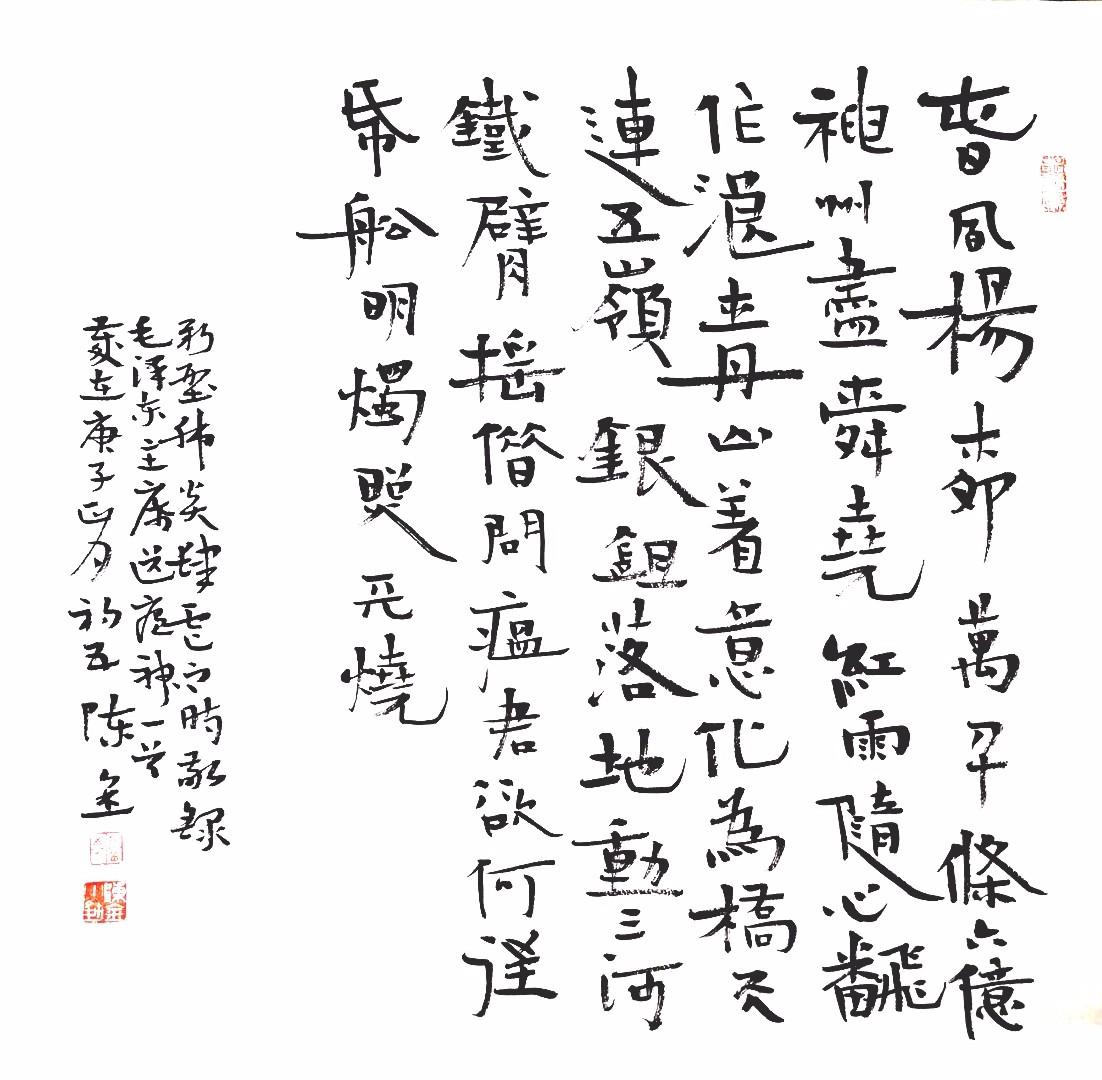 春風楊柳萬千條六億
神州盡舜堯紅雨隨心飜
作浪青山着意化為橋天
連五嶺銀鉏落地動三河
鐵臂摇借問瘟君欲何往
帋船明燭照天燒
新型肺炎肆虐之時敬録
毛泽东主席送瘟神一首
歲在庚子正月初五陈金